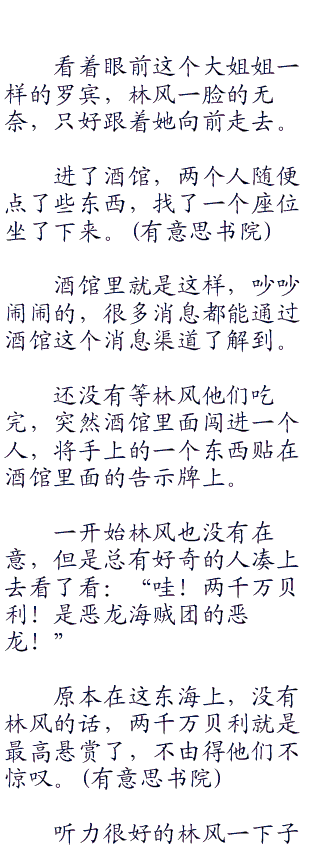 看着眼前这个大姐姐一
样的罗宾，林风一脸的无
奈，只好跟着她向前走去。
进了酒馆，两个人随便
点了些东西，找了一个座位
坐了下来。(有意思书院)
酒馆里就是这样，吵吵
闹闹的，很多消息都能通过
酒馆这个消息渠道了解到。
还没有等林风他们吃
完，突然酒馆里面闯进一个
人，将手上的一个东西贴在
酒馆里面的告示牌上。
一开始林风也没有在
意，但是总有好奇的人凑上
去看了看：“哇！两千万贝
利！是恶龙海贼团的恶
龙！”
原本在这东海上，没有
林风的话，两千万贝利就是
最高悬赏了，不由得他们不
惊叹。(有意思书院)
听力很好的林风一下子